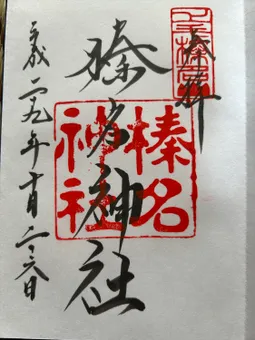 奉拝
榛名神社
榛名
神社
平成二十九年十一月二十六日